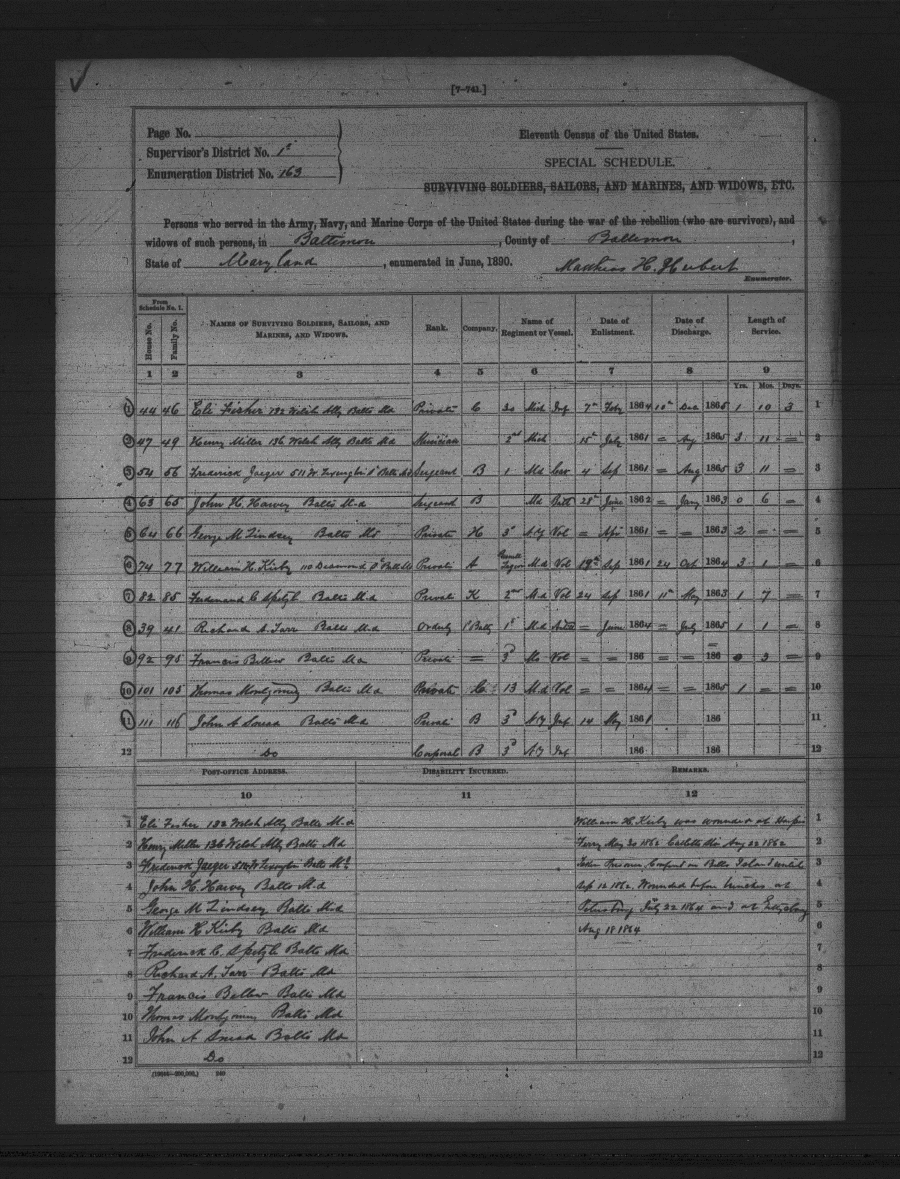 [7-741.]
Page No.
Supervisor's District No. 1s
Enumeration District No. 163
Eleventh Census of the United States.
SPECIAL SCHEDULE.
SURVIVING SOLDIERS, SAILORS, AND MARINES, AND WIDOWS, ETC.
Persons who served in the Army, Navy, and Marine Corps of the United States during the war of the rebellion (who are survivors), and
widows of such persons, in Baltimore, County of Baltimore,
State of Maryland, enumerated in June, 1890. Matthias H. Herbert
Enumerator.
From Schedule No. 1.
House No. Family No. Names of Surviving Soldiers, Sailors, and Marines, and Widows. Rank. Company. Name of Regiment or Vessel. Date of Enlistment. Date of Discharge. Length of Service.
1 2 3 4 5 6 7 8 9
Yrs. Mos. Days.
1 44 46 Eli Fisher 132 Welsh Ally Balto Md Private C 30 Mich Inf 7th Feby 1864 10th Dec 1865 1 10 3 1
2 47 49 Henry Miller 136 Welsh Ally Balto Md Musician 2nd Mich 15th July 1861 = Aug 1865 3 11 = 2
3 54 56 Frederick Jaeger 511 W Lexington St Balto Md Sergeant B 1 Md Cav 4 Sep 1861 = Aug 1865 3 11 = 3
4 63 65 John H. Harvey Balto Md Sergeand B Md Batt 28th June 1862 = Jany 1863 0 6 = 4
5 64 66 George M Lindsey Balto Md Private H 3d NY Vol = Apr 1861 = = 1863 2 = = 5
6 74 77 William H. Kirby 110 Desmond St Balto Md Private A Purnell Legion Md Vol 19th Sep 1861 24 Oct 1864 3 1 = 6
7 82 85 Ferdinand C Spitzh Balto Md Private K 2nd Md Vol 24 Sep 1861 11th May 1863 1 7 = 7
8 39 41 Richard A. Tarr Balto Md Orderly Batty 1s Md = June 1864 = July 1865 1 1 = 8
9 92 95 Francis Bellew Balto Md Private = 3d Vol = = 186 = = 186 0 3 = 9
10 101 105 Thomas Montgomery Balto Md Private C 13 Md Vol = = 1864 = = 1865 1 = = 10
11 111 116 John A Snead Balto Md Private B 3d NY Inf 14 May 1861 186 11
12 Do Corporal B 3d NY Inf 186 186 12
Post-Office Address. Disability Incurred. Remarks.
10 11 12
1 Eli Fisher 132 Welsh Ally Balto Md William H. Kirby was wounder at Harpers 1
2 Henry Miller 136 Welsh Ally Balto Md Ferry May 30 1862 Aug 22 1862 2
3 Frederick Jaeger 511 W Lexington Balto Md Taken Prisoner Confined on Belle Island untill 3
4 John H. Harvey Balto Md Sep 12 1862. Wounded before trenches at 4
5 George M Lindsey Balto Md Petersburg July 22 1864 and at 5
6 William H Kirby Balto Md Aug 18 1864 6
7 Frederick C. Spitzh Balto Md 7
8 Richard A. Tarr Balto Md 8
9 Francis Bellew Balto Md 9
10 Thomas Montgomery Balto Md 10
11 John A Snead Balto Md 11
12 Do 12